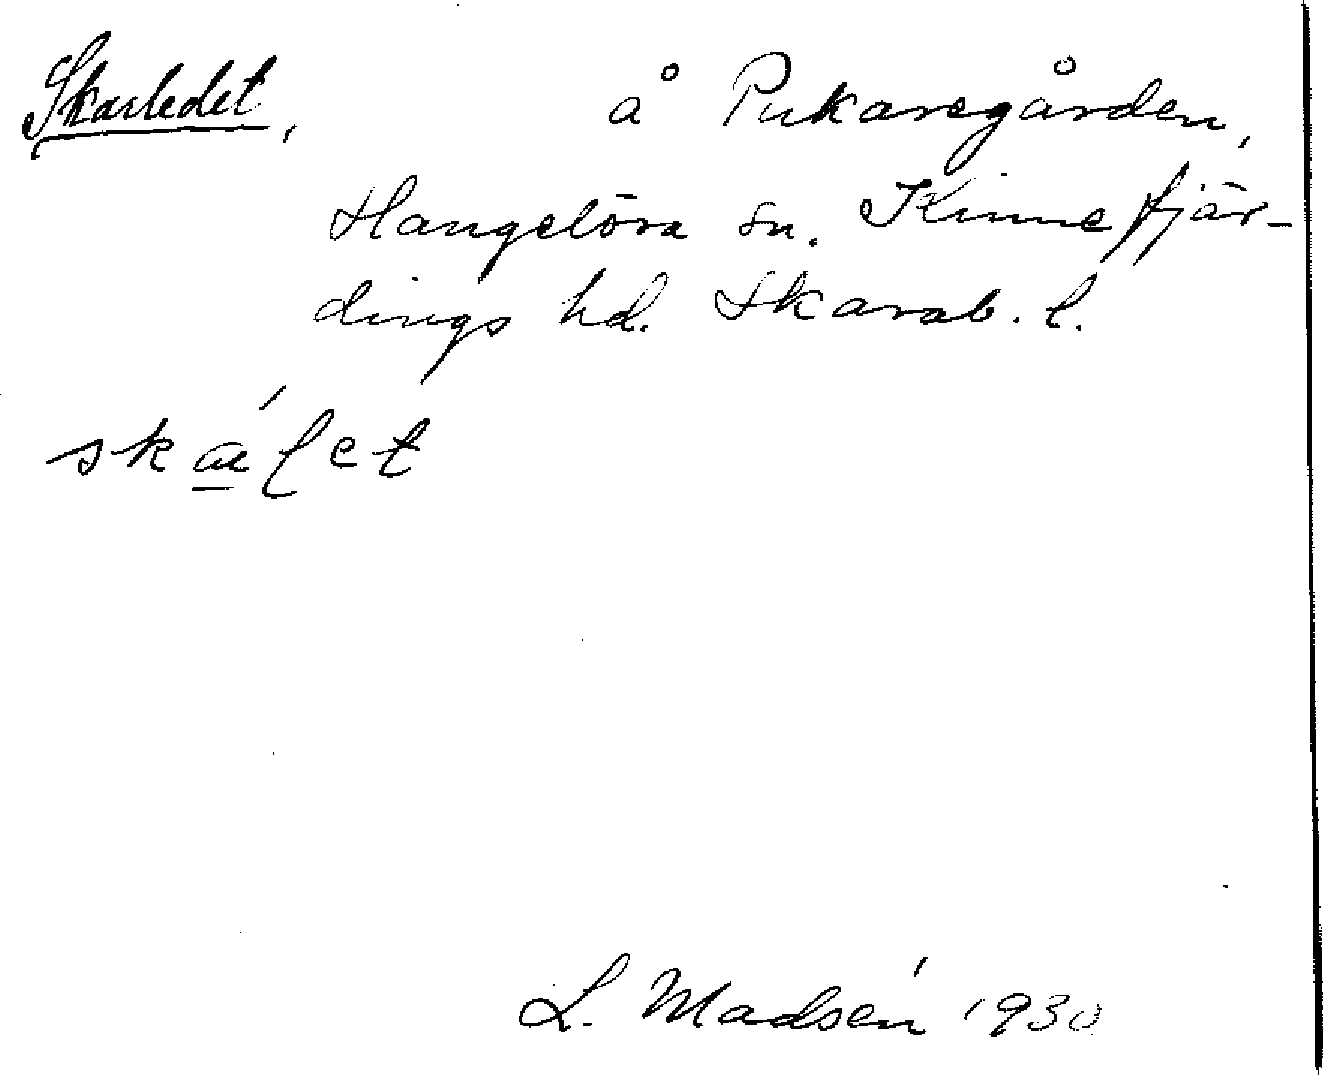 Skarledet, å Pukaregården,
Hangelösa sn. Kinnefjär-
dings hd. Skarab. l.
skǽlet
L. Madsén 1930